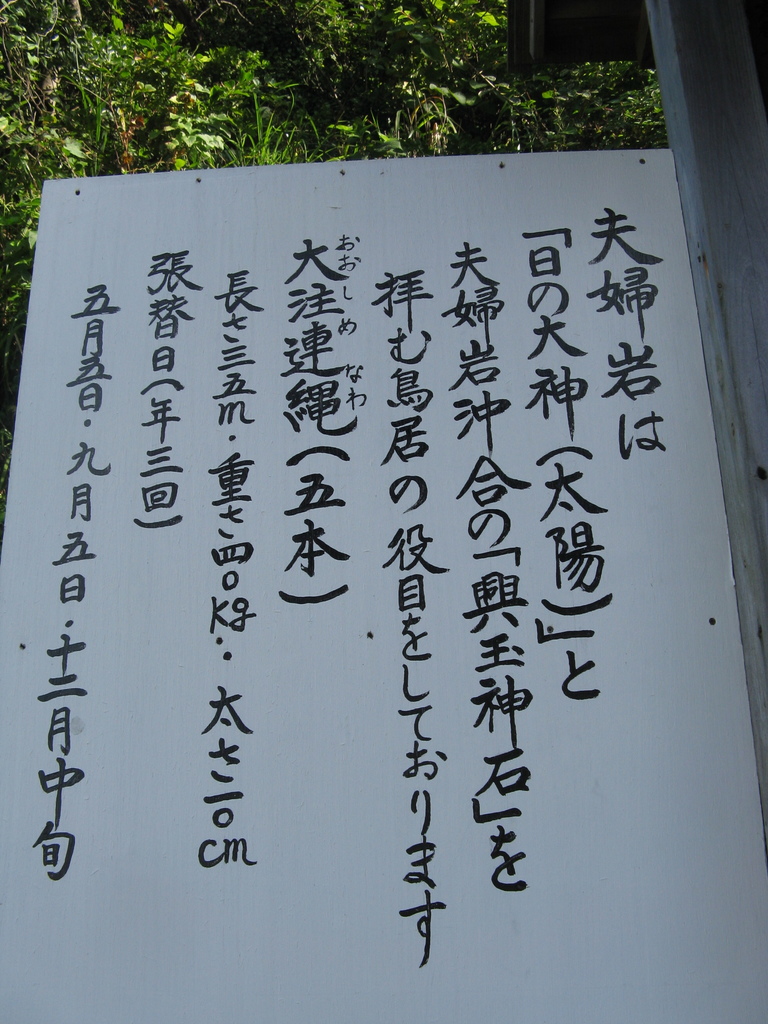 夫婦岩は
「日の大神(太陽)」と
夫婦岩沖合の「興玉神石」を
拝む鳥居の役目をしております
おおしめなわ
大注連縄(五本)
長さ三五m・重さ四〇kg・太さ一〇cm
張替日(年三回)
五月五日・九月五日・十二月中旬